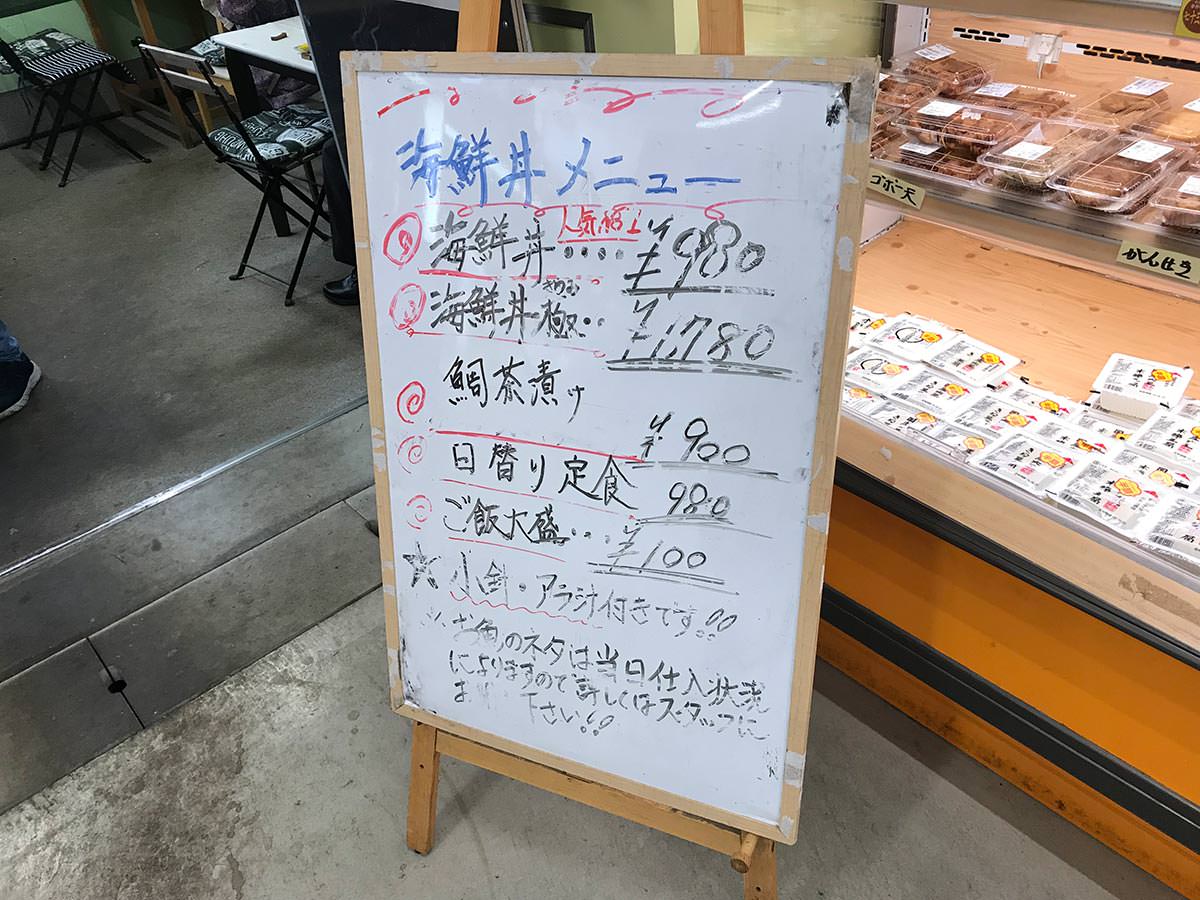 海鮮丼メニュー
海鮮丼・・・・ 人気 ¥980
海鮮丼極・・ きわみ ¥1,780
鯛茶漬け
¥900
日替り定食 980
ご飯大盛・・・ ¥100
☆小鉢・アラ汁付きです!!
※お魚のネタは当日仕入状況
によりますので詳しくはスタッフに
下さい!!
ゴボー天
がんせき